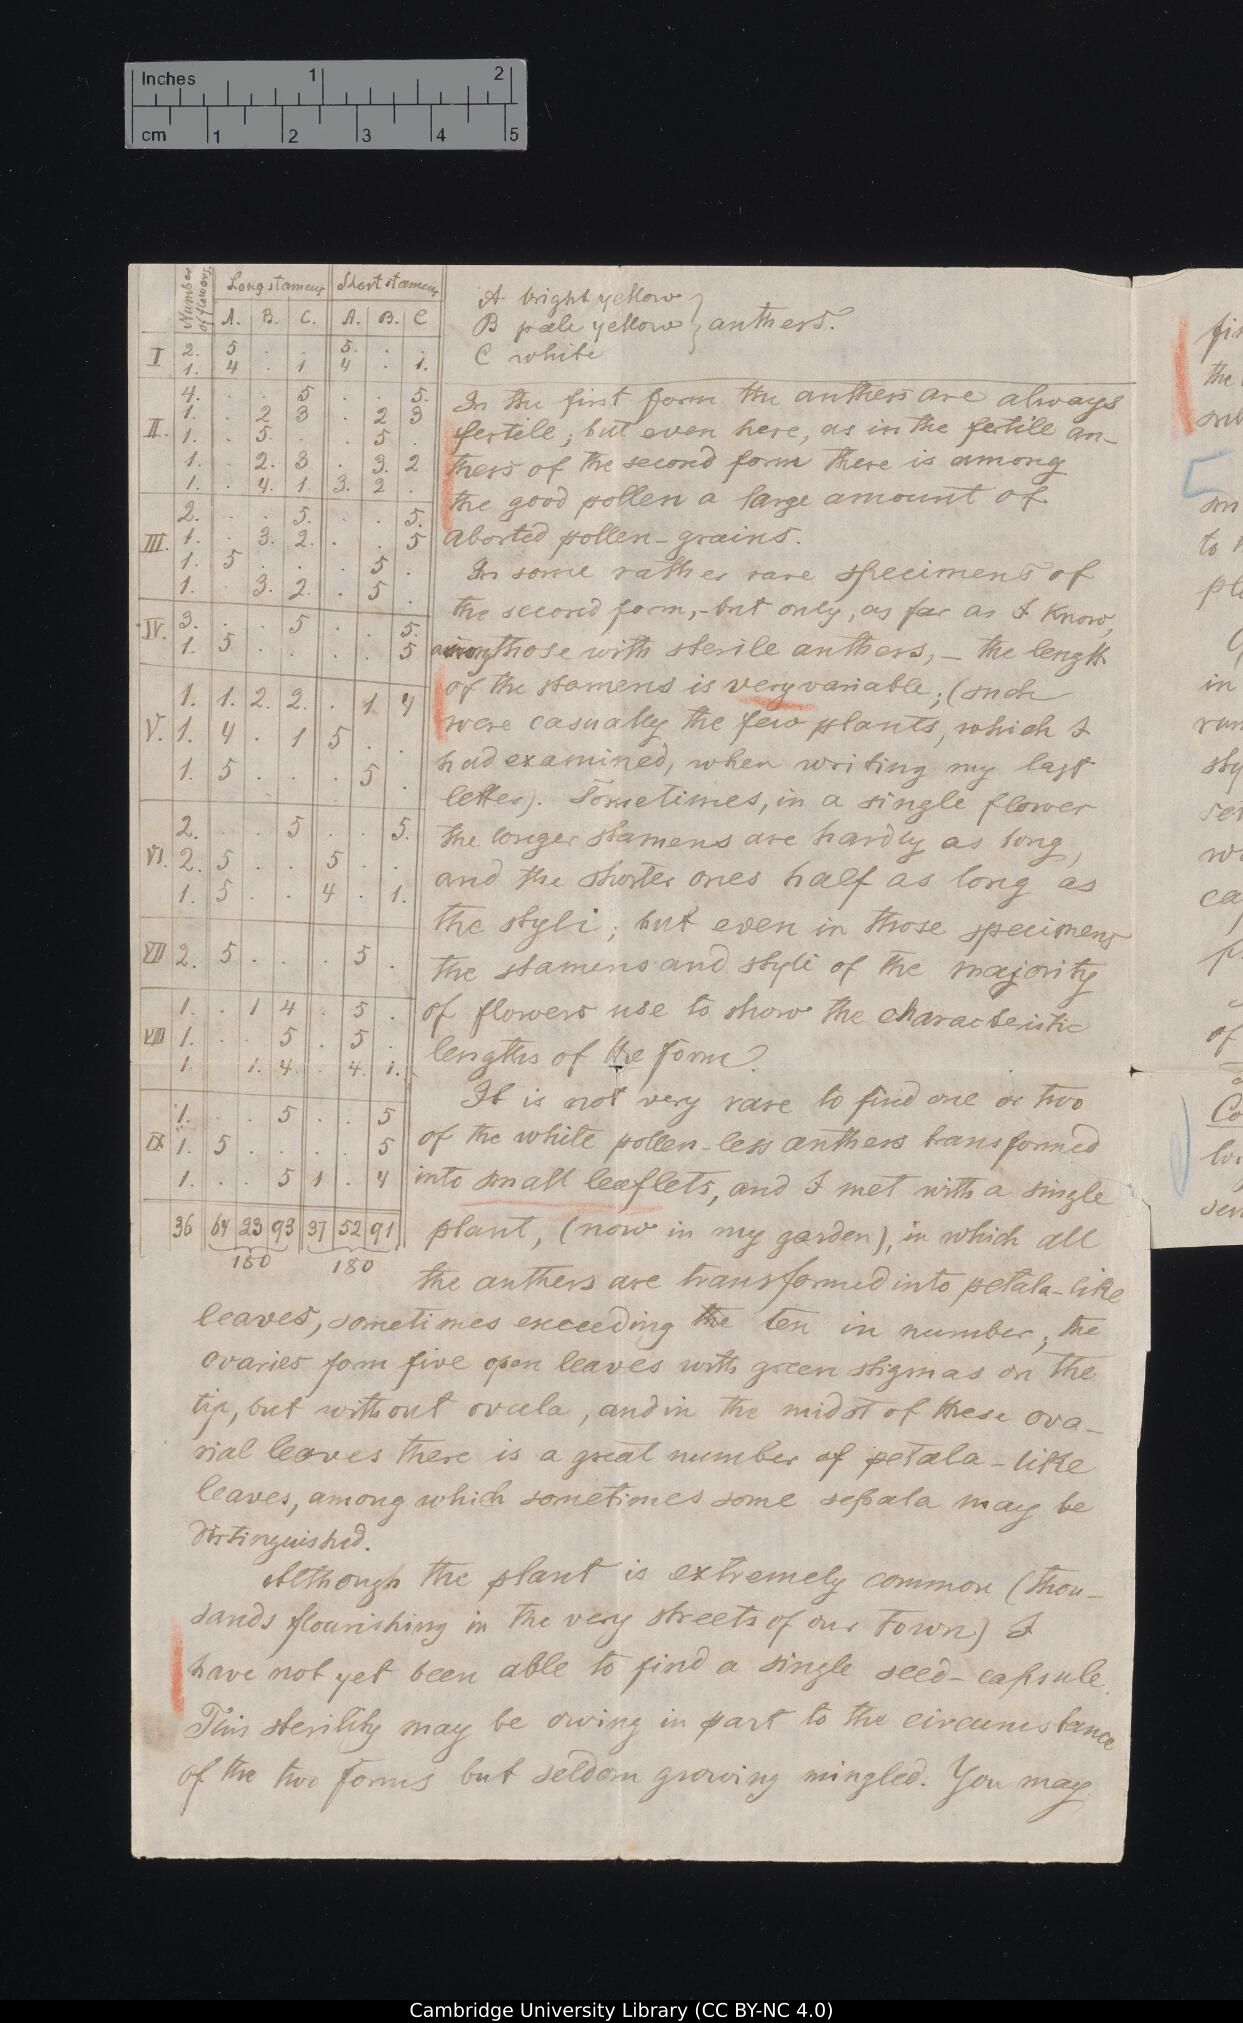 Inches 1 2
cm 1 2 3 4 5
Number of flowers. Long stamens Short stamens
A. B. C. A. B. C
I 2. 5 . . 5. . .
1. 4 . 1 4 . 1.
II. 4. . . 5 . . 5.
1. . 2 3 . 2 3
1. . 5. . . 5 .
1. . 2. 3 . 3. 2
1. . 4. 1. 3. 2 .
III. 2. . . 5. . . 5.
1. . 3. 2. . . 5
1. 5 . . . 5 .
1. . 3. 2. . 5 .
IV. 3. . . 5 . . 5.
1. 5 . . . . 5
V. 1. 1. 2. 2. . 1. 4
1. 4 . 1 5 . .
1. 5 . . . 5 .
VI. 2. . . 5 . . 5.
2. 5 . . 5 . .
1. 5 . . 4 . 1.
VII 2. 5 . . . 5 .
VIII 1. . 1 4 . 5 .
1. . . 5 . 5 .
1. . 1. 4. . 4. 1.
IX. 1. . . 5 . . 5
1. 5 . . . . 5
1. . . 5 1 . 4
36 64 23 93 37 52 91
180 180
A bright yellow
B pale yellow } anthers.
C white
In the first form the anthers are always
fertile; but even here, as in the fertile an-
thers of the second form there is among
the good pollen a large amount of
aborted pollen-grains.
In some rather rare specimens of
the second form,- but only, as far as I know,
among those with sterile anthers, – the length
of the stamens is very variable; (such
were casually the few plants, which I
had examined, when writing my last
letter). Sometimes, in a single flower
the longer stamens are hardly as long,
and the shorter ones half as long as
the styli; but even in those specimens
the stamens and styli of the majority
of flowers use to show the characteristic
lengths of the form.
It is not very rare to find one or two
of the white pollen-less anthers transformed
into small leaflets, and I met with a single
plant, (now in my garden), in which all
the anthers are transformed into petala-like
leaves, sometimes exceeding the ten in number; the
ovaries form five open leaves with green stigmas on the
tip, but without ovula, and in the midst of these ova-
rial leaves there is a great number of petala-like
leaves, among which sometimes some sepala may be
distinguished.
Although the plant is extremely common (thou-
sands flourishing in the very streets of our town) I
have not yet been able to find a single seed-capsule.
This sterility may be owing in part to the circumstance
of the two forms but seldom growing mingled. You may
the
to
in
of
Cambridge University Library (CC BY-NC 4.0)